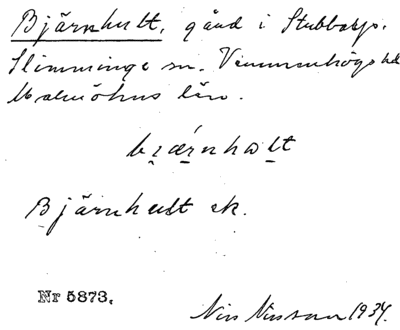 Bjärnhult, gård i Stubbarp,
Slimminge sn. Vemmenhögs hd
Malmöhus län.
bı̣ǽ̣rnhɷḷt
Bjärnhult ek.
Nr 5873.
Nils Nilsson 1934.